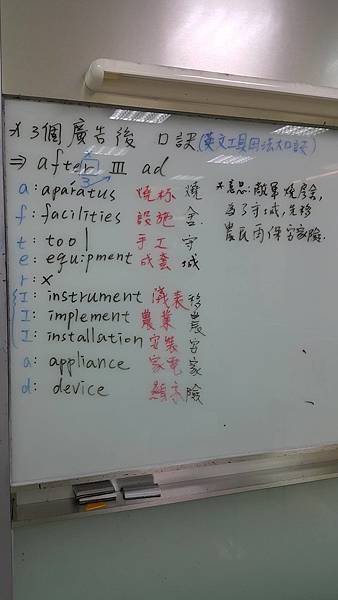 * 3個廣告後 口訣(英文工具用法大口訣)
⇒ after III ad
3
a: aparatus 燒杯 燒
f: facilities 設施 舍
t: tool 手工 守
e: equipment 成套 城
r: x
I: instrument 儀表 移
I: implement 農業 農
I: installation 安裝 安
a: appliance 家電 家
d: device 顯示 險
*意思: 敵軍燒房舍,
為了守城, 先移
農民內保安家險.